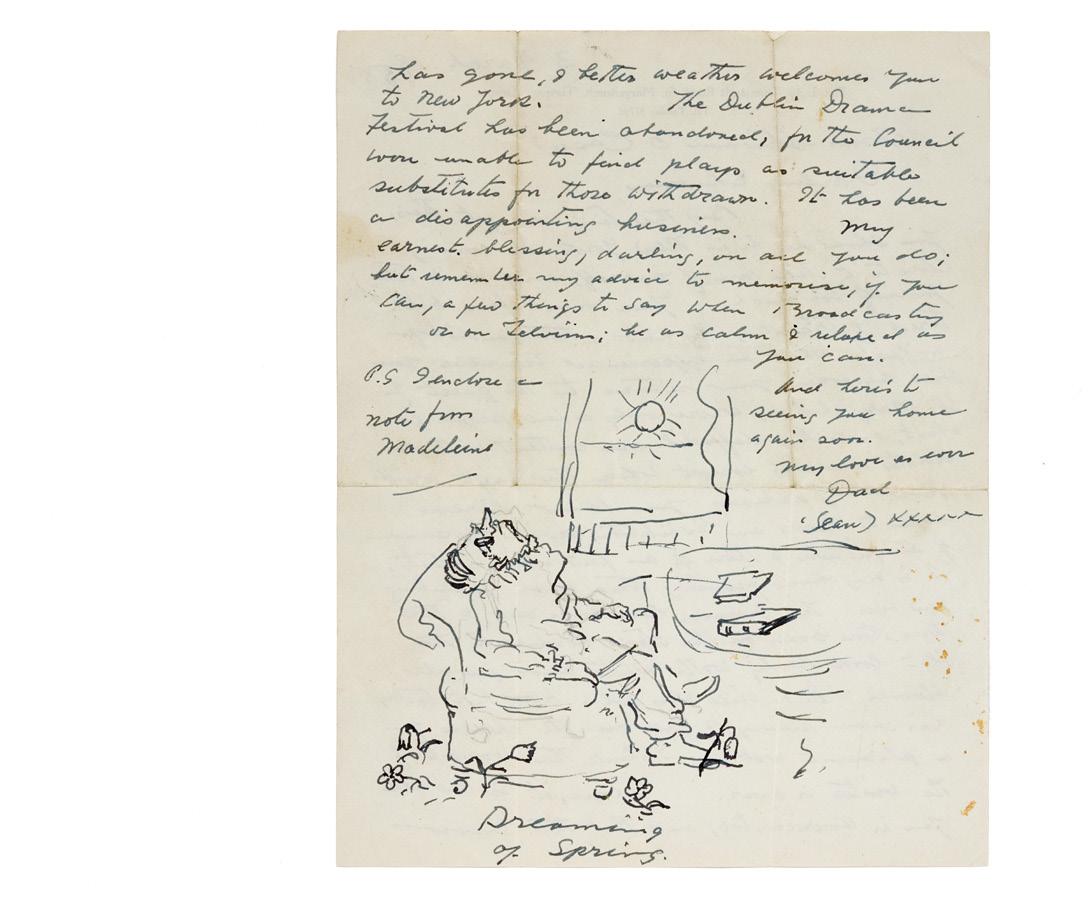 has gone, & better weather welcomes you
to New York. The Dublin Drama
Festival has been abandoned, for the Council
were unable to find plays as suitable
substitutes for those withdrawn. It has been
a disappointing business. My
earnest blessing, darling, on all you do;
but remember my advice to memorise, if you
can, a few things to say when Broadcasting
or on; be as calm & relaxed as
you can.
And here's to
seeing you home
again soon.
My love as ever
Dad
(Sean) xxxxx
P.S I enclose a
note from
Madeleine
Dreaming
of Spring.